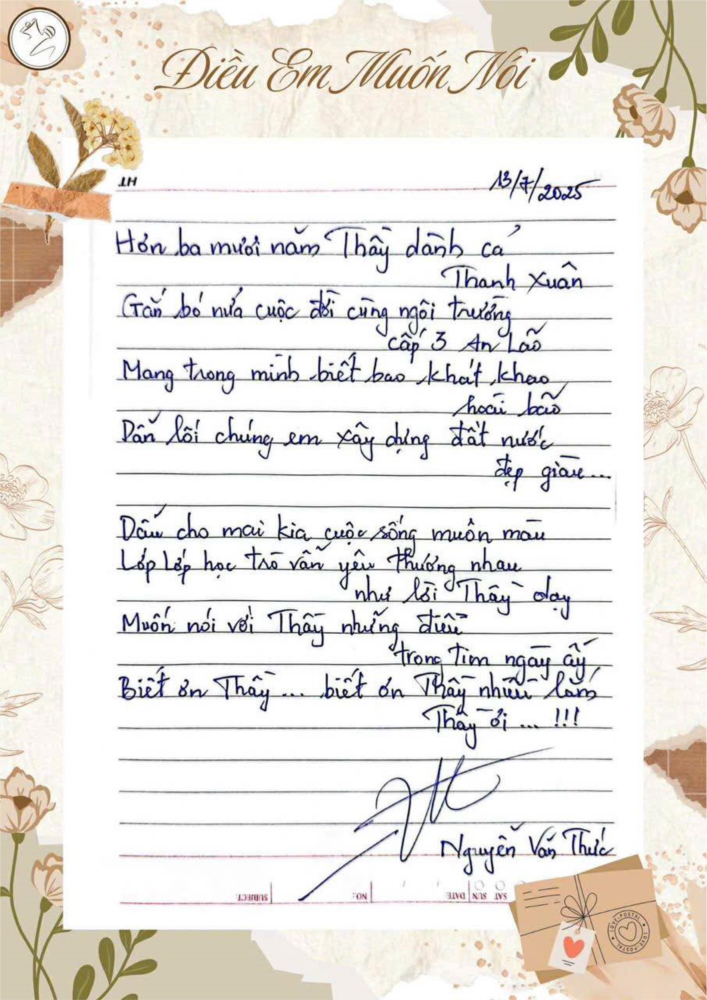 Điều Em Muốn Nói
HT
13/7/2025
Hơn ba mươi năm Thầy dành cả
Thanh Xuân
Gắn bó nửa cuộc đời cùng ngôi trường
cấp 3 An Lão
Mang trong mình biết bao khát khao
hoài bão
Dẫn lối chúng em xây dựng đất nước
đẹp giàu...
Dẫu cho mai kia cuộc sống muôn màu
Lớp Lớp học trò vẫn yêu thương nhau
như lời Thầy dạy
Muốn nói với Thầy những điều
trong tim ngày ấy
Biết ơn Thầy ... biết ơn Thầy nhiều lắm
Thầy ơi ... !!!
Nguyễn Văn Thức
SUBJECT: NO: DATE SUN SAT
LOVE POSTAL LOVE POSTAL